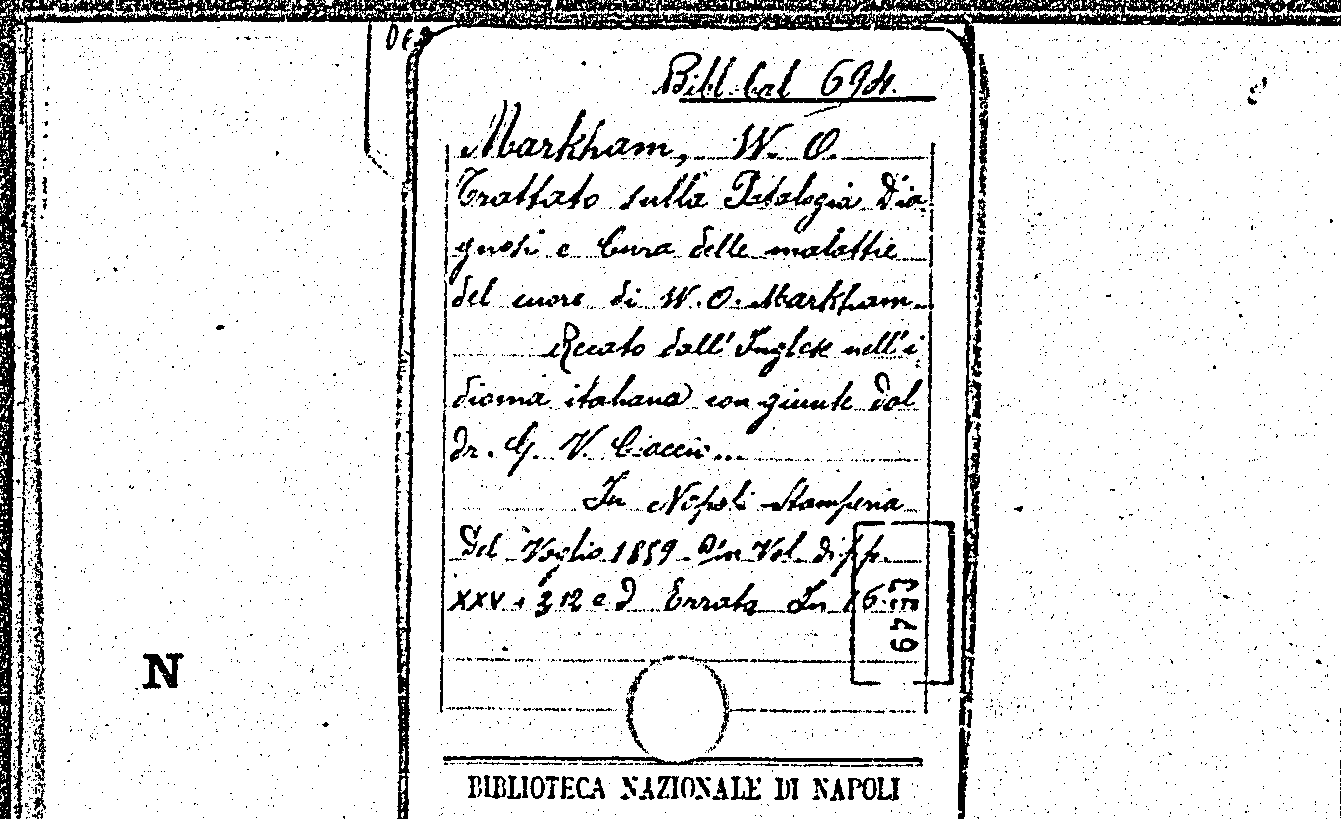 Bibl. Cal 694.
Markham, W. O.
Trattato sulla Patologia Dia
gnosi e Cura delle malattie
del cuore di W. O. Markham.
Recato dall'Inglese nell'i
dioma italiano con giunte dal
dr. G. V. Ciaccio...
In Napoli Stamperia
Del Vaglio 1859 Vol. di pp.
XXV. 312 e d Errata In 16.
6749
N
BIBLIOTECA NAZIONALE DI NAPOLI